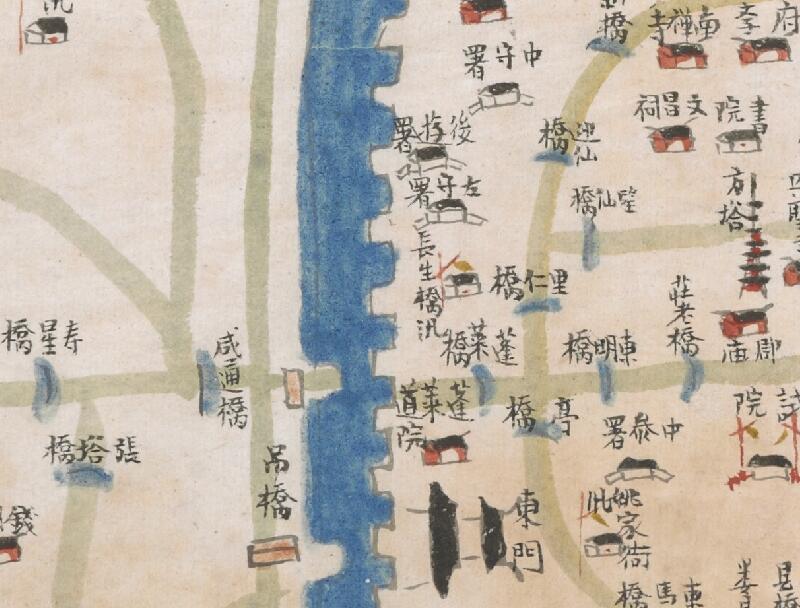 府李
南禪寺
橋
汛
中守署
書院
文昌祠
後游署
迎仙橋
左守署
望仙橋
方塔
長生橋汛
里仁橋
莊老橋
郡廟
東明橋
蓬萊橋
咸通橋
寿星橋
試院
中叅署
亭橋
蓬萊道院
張塔橋
吊橋
東門
姚家衖汛
錢
東馬橋